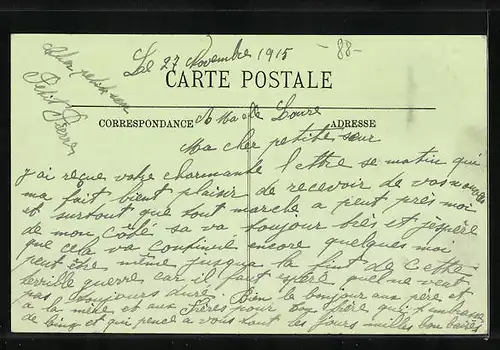 Le 27 Novembre 1915
-88-
CARTE POSTALE
CORRESPONDANCE
ADRESSE
petite
Petit Pierre
Ma cher petite sœur
J'ai reçue votre charmante lettre se matin qui
ma fait bient plaisir de recevoir de vos nouvelles
et surtout que tout marche a peut près moi
de mon côté sa va toujour bien et j'espère
que cela va continué encore quelques moi
peut être même jusqua la fint de cette
terrible guerre car il faut espéré quel ne vent
pas toujours duré. Bien le bonjour aux père et
a la mère et aux frères pour ton frère qui t'embrasse
de loing et qui pence a vous tout les jours milles bon baisés